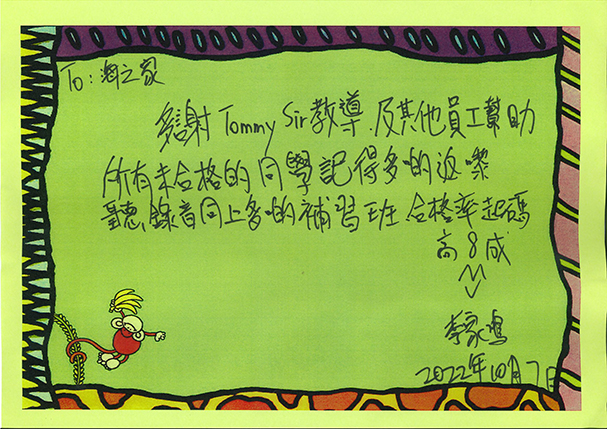 To: 海之家
多謝 Tommy Sir 教導 及其他員工幫助
所有未合格的同學記得多的返嚟
聽錄音同上多的補習班 合格率起碼
高8成
李家鳴
2022年10月7日